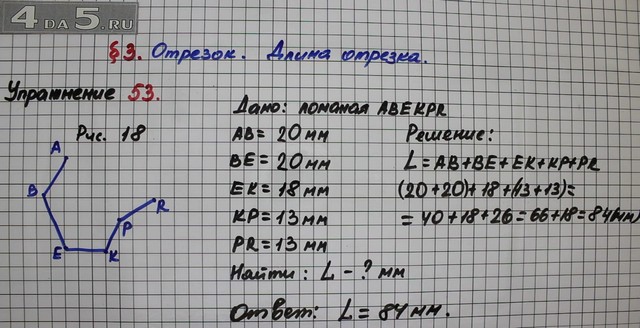 4 DA 5.RU
§3. Отрезок. Длина отрезка.
Упражнение 53.
Рис. 18
A
B
E
K
P
R
Дано: ломаная ABEKPR
AB = 20 мм
BE = 20 мм
EK = 18 мм
KP = 13 мм
PR = 13 мм
Найти: L - ? мм
Решение:
L = AB + BE + EK + KP + PR
(20 + 20) + 18 + (13 + 13) =
= 40 + 18 + 26 = 66 + 18 = 84(мм)
Ответ: L = 84 мм.